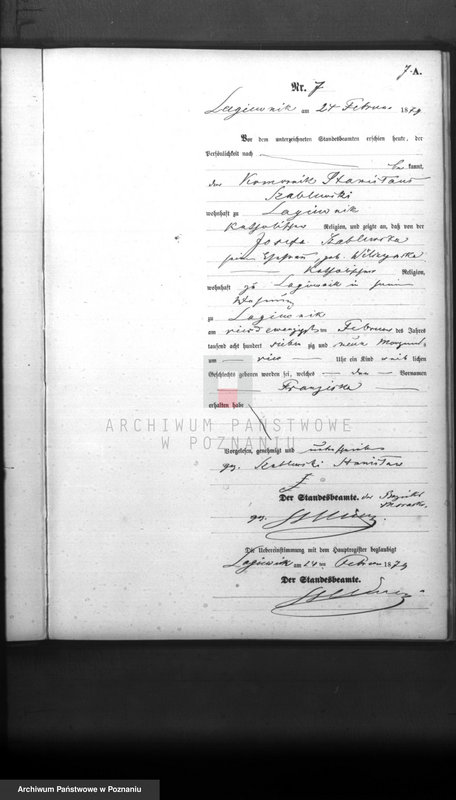 7-A.
Nr. 7
Lagiewnik am 24 Februar 1879
Vor dem unterzeichneten Standesbeamten erschien heute, der
Persönlichkeit nach
be kannt,
der Komornik Stanislaus
Szablewski
wohnhaft zu Lagiewnik
katholischer Religion, und zeigte an, daß von der
Josefa Szablewska
seine Ehefrau geb.
katholischer Religion,
wohnhaft zu Lagiewnik in seiner
Wohnung
zu Lagiewnik
am Februar des Jahres
tausend acht hundert sieben zig und neun
um Uhr ein Kind weib lichen
Geschlechts geboren worden sei, welches den Vornamen
Franziska
erhalten habe
ARCHIWUM PAŃSTWOWE
W POZNANIU
Vorgelesen, genehmigt und unterschrieben
gez. Szablewski Stanislaw
Der Standesbeamte. des Bezirks
gez.
Die Uebereinstimmung mit dem Hauptregister beglaubigt
Lagiewnik am 24 ten Februar 1879
Der Standesbeamte.
Archiwum Państwowe w Poznaniu